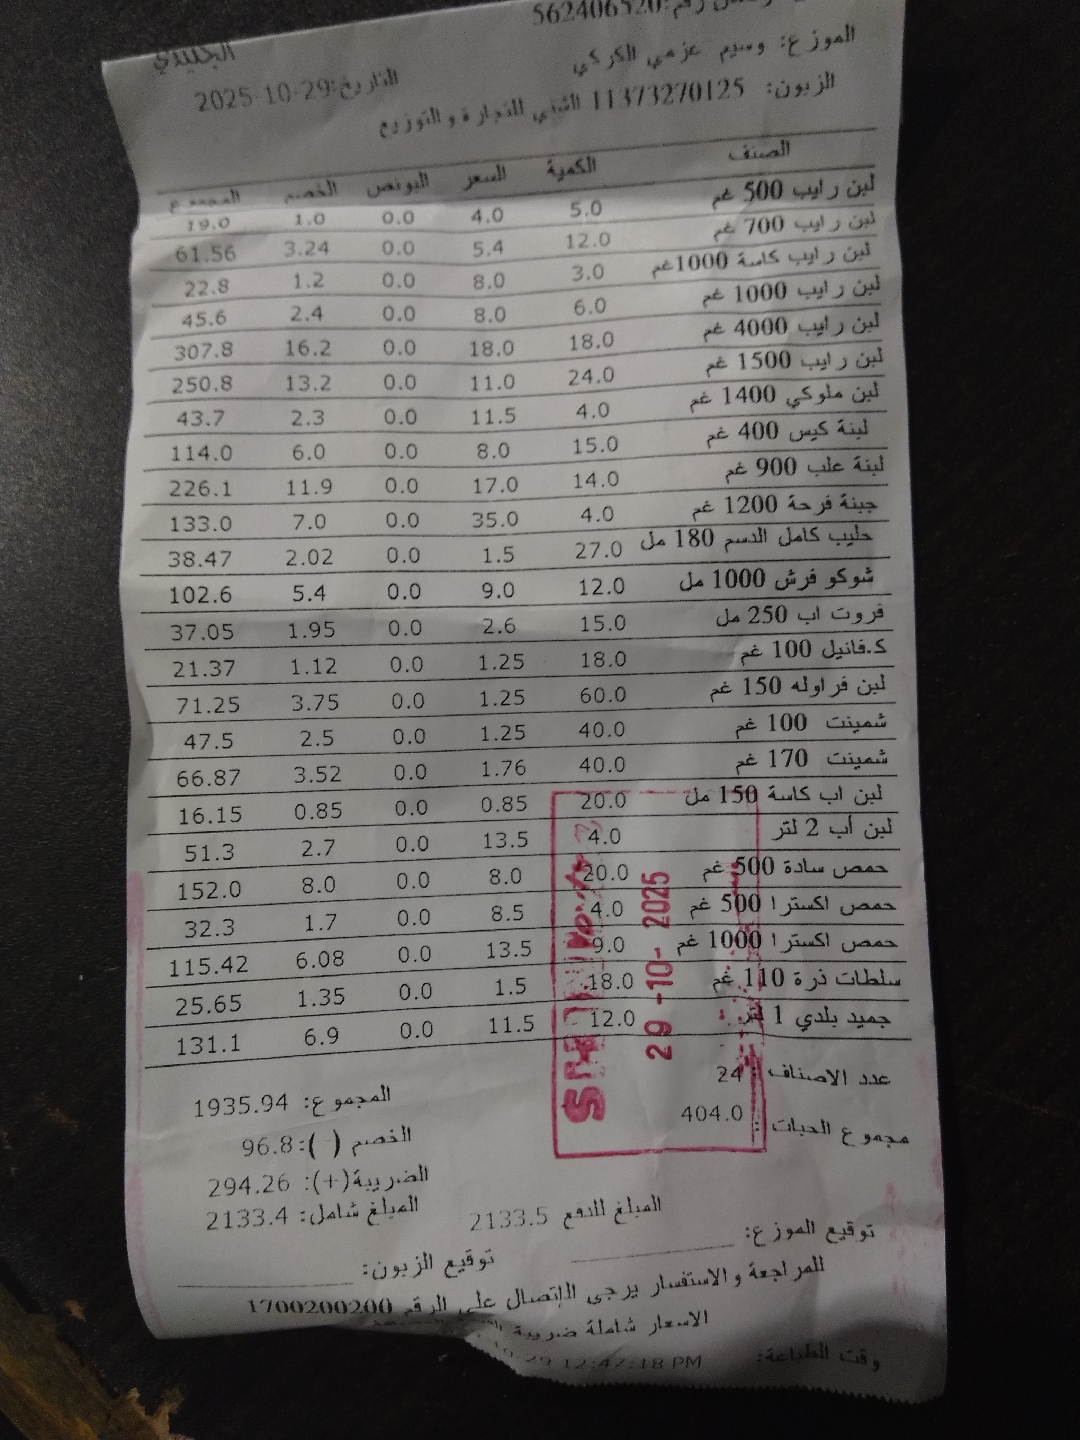 رقم: 562406520
الموزع: وسيم عزمي الكركي
الجنيدي
الزبون: 11373270125 الشني للتجارة والتوزيع
التاريخ: 2025-10-29
الصنف الكمية السعر البونص الخصم المجموع
لبن رايب 500 غم 5.0 4.0 0.0 1.0 19.0
لبن رايب 700 غم 12.0 5.4 0.0 3.24 61.56
لبن رايب كاسة 1000غم 3.0 8.0 0.0 1.2 22.8
لبن رايب 1000 غم 6.0 8.0 0.0 2.4 45.6
لبن رايب 4000 غم 18.0 18.0 0.0 16.2 307.8
لبن رايب 1500 غم 24.0 11.0 0.0 13.2 250.8
لبن ملوكي 1400 غم 4.0 11.5 0.0 2.3 43.7
لبنة كيس 400 غم 15.0 8.0 0.0 6.0 114.0
لبنة علب 900 غم 14.0 17.0 0.0 11.9 226.1
جبنة فرحة 1200 غم 4.0 35.0 0.0 7.0 133.0
حليب كامل الدسم 180 مل 27.0 1.5 0.0 2.02 38.47
شوكو فرش 1000 مل 12.0 9.0 0.0 5.4 102.6
فروت اب 250 مل 15.0 2.6 0.0 1.95 37.05
ك.فانيل 100 غم 18.0 1.25 0.0 1.12 21.37
لبن فراوله 150 غم 60.0 1.25 0.0 3.75 71.25
شمينت 100 غم 40.0 1.25 0.0 2.5 47.5
شمينت 170 غم 40.0 1.76 0.0 3.52 66.87
لبن اب كاسة 150 مل 20.0 0.85 0.0 0.85 16.15
لبن أب 2 لتر 4.0 13.5 0.0 2.7 51.3
حمص سادة 500 غم 20.0 8.0 0.0 8.0 152.0
حمص اكسترا 500 غم 4.0 8.5 0.0 1.7 32.3
حمص اكسترا 1000 غم 9.0 13.5 0.0 6.08 115.42
سلطات ذرة 110 غم 18.0 1.5 0.0 1.35 25.65
جميد بلدي 1 لتر 12.0 11.5 0.0 6.9 131.1
29 -10- 2025
عدد الاصناف : 24
مجموع الحبات : 404.0
المجموع: 1935.94
الخصم (-): 96.8
الضريبة(+): 294.26
المبلغ شامل: 2133.4
المبلغ للدفع 2133.5
توقيع الموزع:
توقيع الزبون:
للمراجعة والاستفسار يرجى الاتصال على الرقم 1700200200
الاسعار شاملة ضريبة
وقت الطباعة: 29 12:42:18 PM